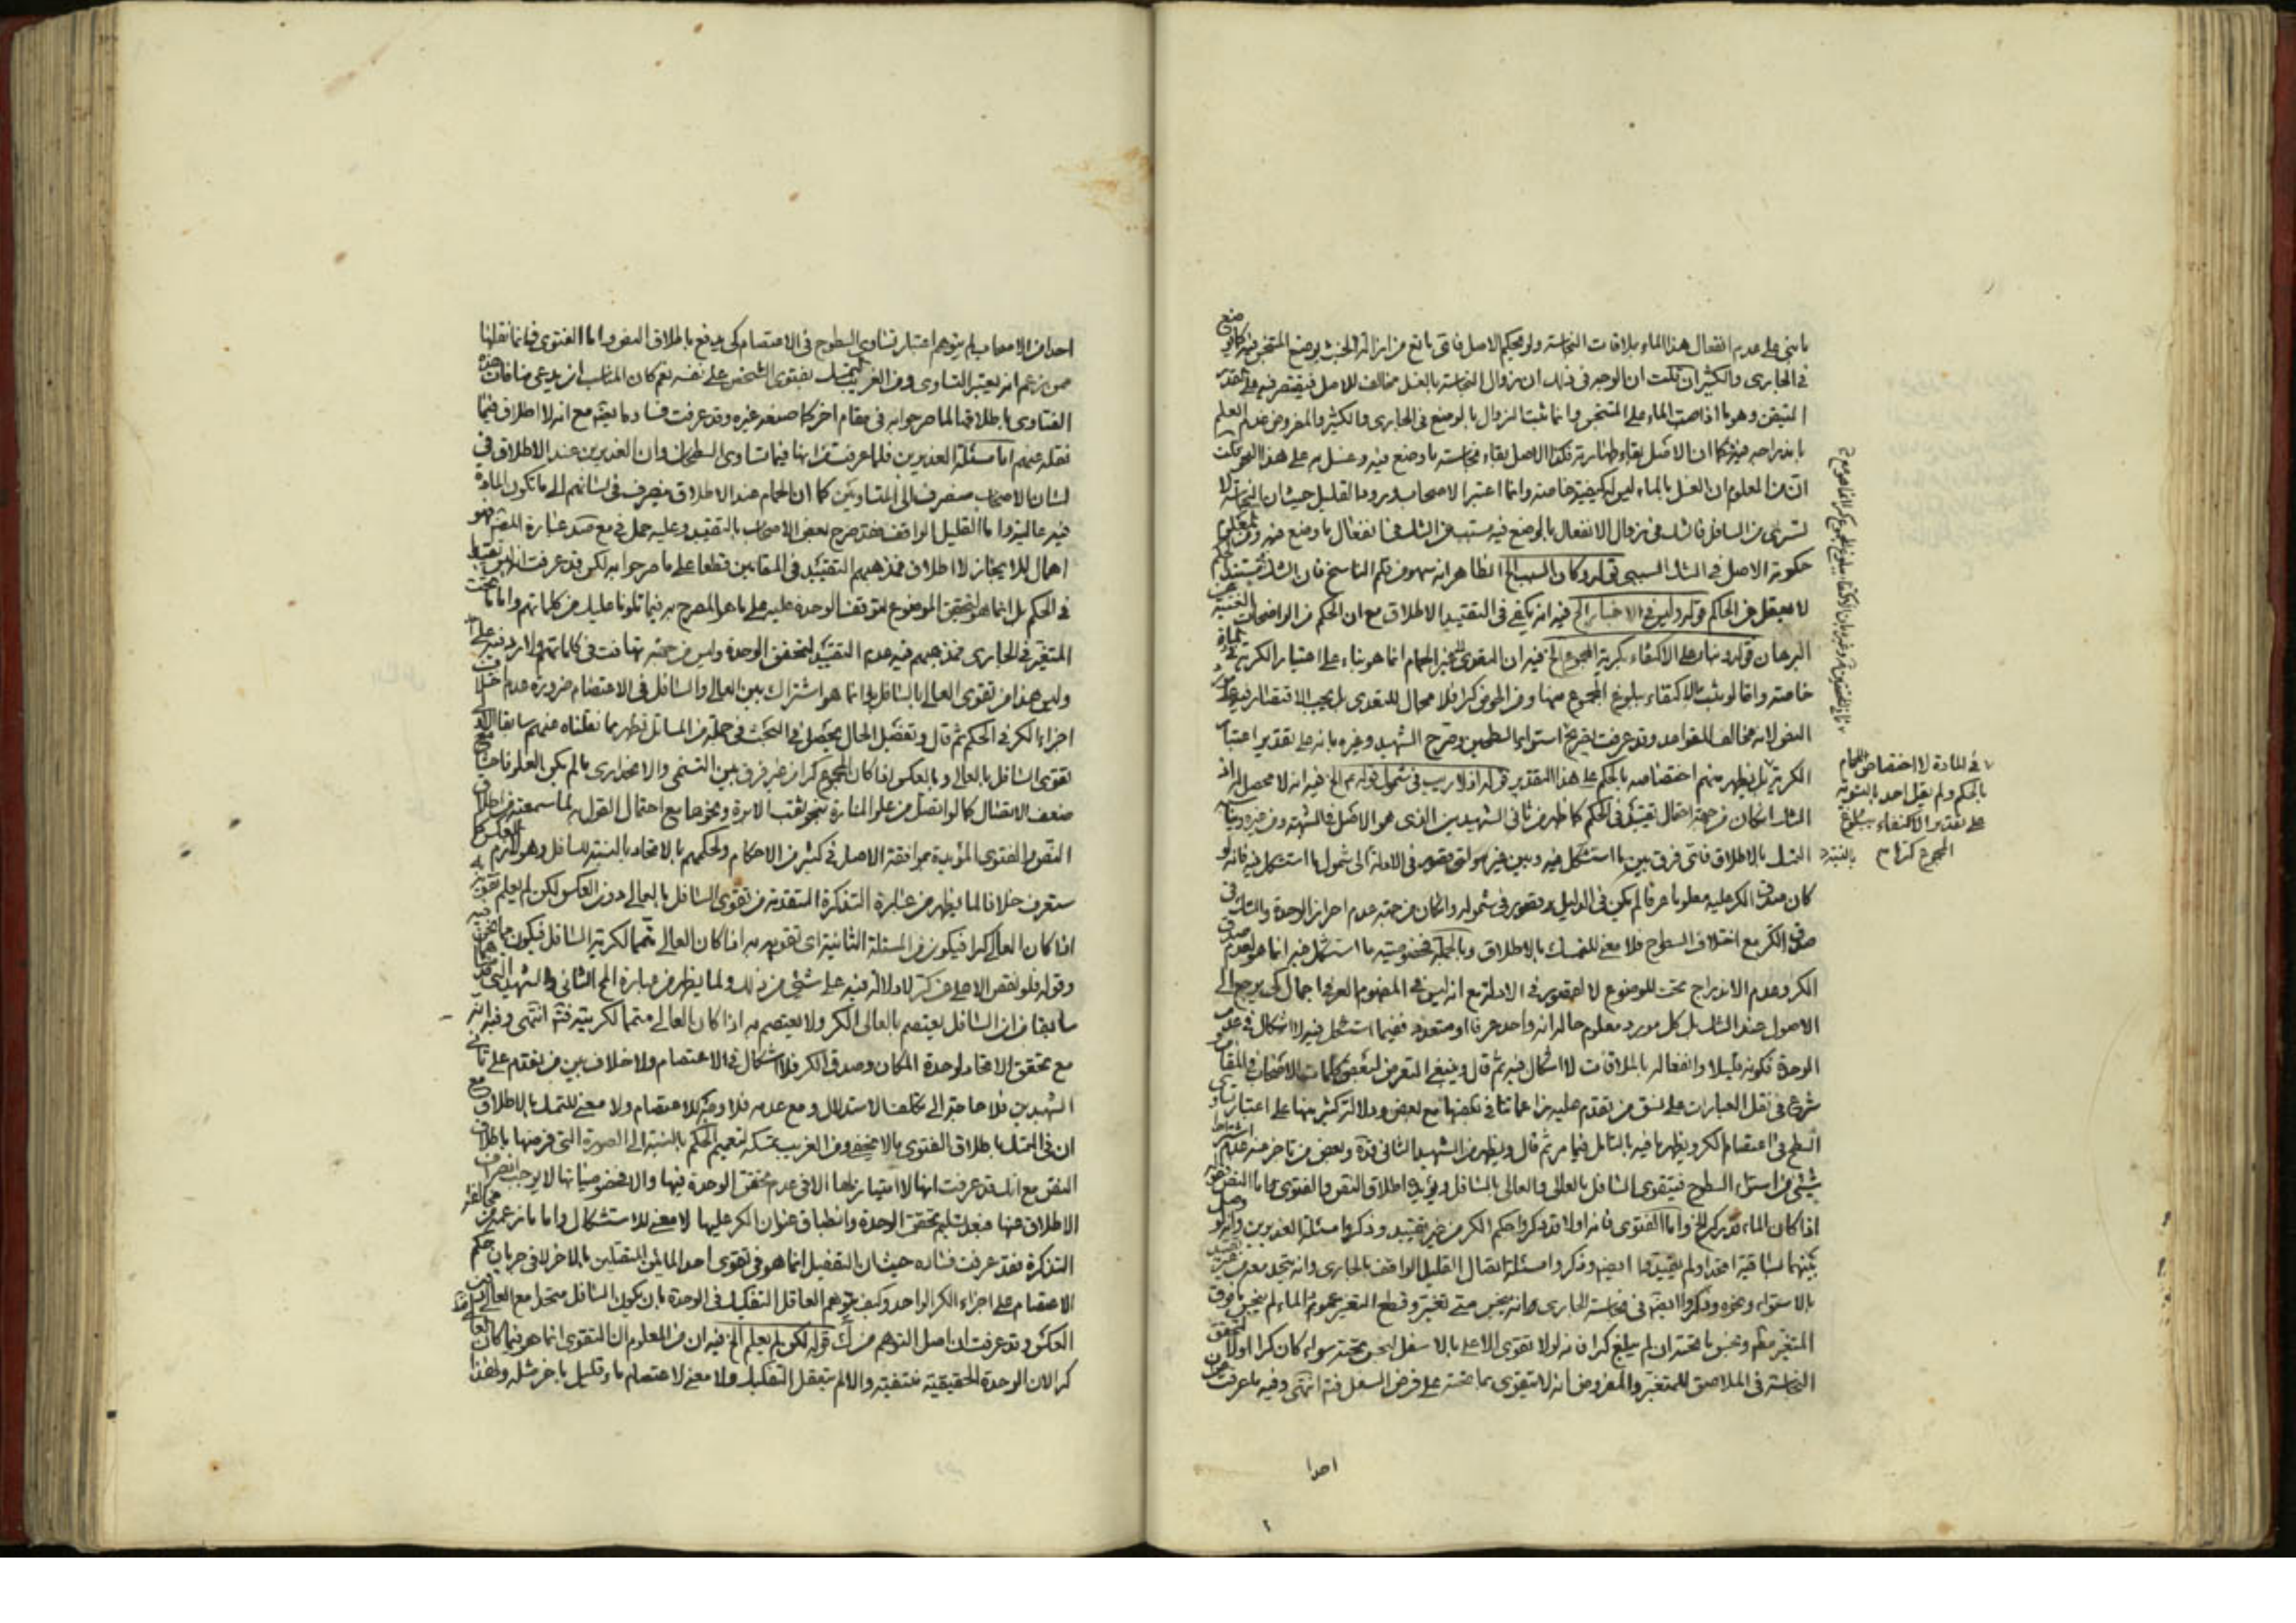 ما بنى على عدم انفعال هذا الماء بملاقات النجاسة ولو بحكم الاصل فاى مانع من ازالة الخبث بوضع المتنجس فيه كما لو وضع
فى الجارى والكثير ان قلت ان الوجه فى ذلك ان زوال النجاسة بالغسل مخالف للاصل فيقتصر فيه على القدر
المتيقن وهو ما اذا صب الماء على المتنجس وانما ثبت الزوال بالوضع فى الجارى والكثير والمفروض عدم العلم
باندراجه فيه فكما ان الاصل بقاء طهارته فكذا الاصل بقاء نجاسة ما وضع فيه وغسل به على هذا الوجه قلت
ان من المعلوم ان الغسل بالماء ليس له كيفية خاصة وانما اعتبر الاصحاب ورود الماء القليل حيث ان النجاسة لا
تسرى من السافل فالشك فى زوال الانفعال بالوضع فيه مسبب من الشك فى انفعال ما وضع فيه ومن المعلوم
حكومة الاصل فى الشك السببى قوله وكان السبب الخ الظاهر انه سهو من قلم الناسخ فان الشك
لا يعقل من الحاكم قوله وليس فى الاخبار الخ فيه انه يكفى فى التقييد الاطلاق مع ان الحكم من الواضحات الغنية عن
البرهان قوله وبناء على الاكتفاء بكرية المجموع الخ فيه ان التقوى فى الحمام انما هو بناء على اعتبار الكرية فى المادة
خاصة واما لو ثبت الاكتفاء ببلوغ المجموع منها ومن الحوض كرا فلا مجال للتعدى بل يجب الاقتصار فيه على مورد
النص لانه مخالف للقواعد وقد عرفت تصريح استواء السطحين وصرح الشهيد وغيره بانه على تقدير اعتبار
الكرية بل يظهر منهم اختصاصه بالحكم على هذا التقدير قوله اذ لا ريب فى شمول قوله الخ فيه انه لا محصل له اذ
الشك ان كان من جهة احتمال تقييد فى الحكم كما ظهر من ثانى الشهيدين الذى هو الاصل فى الشبهة ومن غيره
التمسك بالاطلاق فاى فرق بين ما استشكل فيه وبين غيره واى قصور فى الادلة الى شمول ما استشكل فيه فانه لو
كان صدق الكر عليه معلوما عرفا لم يكن فى الدليل قصور فى شموله وان كان من جهة عدم احراز الوحدة والشك فى
صدق الكر مع اختلاف السطوح فلا معنى للتمسك بالاطلاق وبالجملة فخصوصية ما استشكل فيه انما هو لعدم صدق
الكر وعدم الاندراج تحت الموضوع لا لقصور فى الادلة مع انه ليس فى المفهوم العرفى اجمال كى يرجع الى
الاصول عند الشك بل كل مورد معلوم حاله انه واحد عرفا او متعدد ففيما استشكل فيه لا اشكال فى عدم
الوحدة فكونه قليلا وانفعاله بالملاقات لا اشكال فيه ثم قال وينبغى التعرض لبعض كلمات الاصحاب فى المقام
شرع فى نقل العبارات على نسق من تقدم عليه زاعما تنافى بعضها مع بعض ودلالة كثير منها على اعتبار تساوى
السطح فى اعتصام الكر ويظهر ما فيه بالتامل فيما مر ثم قال ويظهر من الشهيد الثانى قده وبعض من تاخر عنه عدم اشتراط
شىء من استواء السطوح فيتقوى السافل بالعالى والعالى بالسافل ويؤيده اطلاق النص والفتوى اما النص فقوله
اذا كان الماء قدر كر الخ واما الفتوى فانه اولا قد ذكروا حكم الكر من غير تقييد وذكروا مسئلة الغديرين وانه لو وصل
بينهما بساقية اتحدا ولم يقيدوها ايضا وذكروا مسئلة اتصال القليل الواقف بالجارى وانه يتحد معه من غير تقييد
بالاستواء ونحوه وذكروا ايضا فى نجاسة الجارى وانه ينجس متى تغير وقطع التغير عمود الماء لم ينجس ما فوق
المتغير مطلقا وتنجس ما تحته ان لم يبلغ كرا فانه لولا تقوى الاعلى بالاسفل لنجس تحته سواء كان كرا او لا لتحقق
النجاسة فى الملاصق للمتغير والمفروض انه لا يتقوى بما تحته على فرض السفل فته انتهى وفيه ما عرفت من ان
فى المادة لا اختصاص الحمام
بالحكم ولم يقل احد بالتسوية
على تقدير الاكتفاء ببلوغ
المجموع كرا
احدا
احدا من الاصحاب لم يتوهم اعتبار تساوى السطوح فى الاعتصام كى يدفع باطلاق النص واما الفتوى فانما نقلها
ممن زعم انه يعتبر التساوى ومن الغريب التمسك بفتوى الشخص على نفسه نعم كان المناسب ان يدعى منافات هذه
الفتاوى باطلاقها لما صرحوا به فى مقام اخر كما صنعه غيره وقد عرفت فساده ايضا مع انه لا اطلاق فيما
نقله عنهم اما مسئلة الغديرين فلما عرفت من انها فيما تساوى السطحان وان الغديرين عند الاطلاق فى
لسان الاصحاب منصرف الى المتساويين كما ان الحمام عند الاطلاق منصرف فى لسانهم الى ما تكون المادة
فيه عالية واما القليل الواقف فقد صرح بعض الاصحاب بالتقييد وعليه حمل فى مع صد عبارة المص فهو
اهمال للايجاز لا اطلاق فمذهبهم التقييد فى المقامين قطعا على ما صرحوا به لكن قد عرفت انه ليس تقييدا
فى الحكم بل انما هو لتحقق الموضوع لتوقف الوحدة عليه على ما هو المصرح به فيما تلونا عليك من كلماتهم واما ما تحت
المتغير فى الجارى فمذهبهم فيه عدم التقييد لتحقق الوحدة وليس من جهته تهافت فى كلماتهم
وليس هذا من تقوى العالى بالسافل بل انما هو اشتراك بين العالى والسافل فى الاعتصام ضرورة عدم اختلاف
اجزاء الكر فى الحكم ثم قال وتفصيل الحال يحصل فى البحث فى جملة من المسائل تظهر مما نقلناه عنهم سابقا الاولى
تقوى السافل بالعالى وبالعكس اذا كان المجموع كرا من غير فرق بين التسنمى والانحدارى ما لم يكن العلو فاحشا مع
ضعف الاتصال كما لو اتصل من علو المنارة بنحو ثقب الابرة ونحوها مع احتمال القول به لما سمعته من اطلاق
النص والفتوى المؤيدة بموافقة الاصل فى كثير من الاحكام ولحكمهم بالاتحاد بالنسبة للسافل وهو يستلزم العكس كما
ستعرف خلافا لما يظهر من عبارة التذكرة المتقدمة من تقوى السافل بالعالى دون العكس لكن لم يعلم تقويته به
اذا كان العالى كرا فيكون من المسئلة الثانية اى تقويه به اذا كان العالى متمما لكرية السافل فيكون مما نحن فيه
وقوله فلو نقص الاعلى عن كر لا دلالة فيه على شىء من ذلك ولما يظهر من عبارة المحقق الثانى والشهيد
سابقا من ان السافل يعتصم بالعالى الكر ولا يعتصم به اذا كان العالى متمما لكريته فته انتهى وفيه انه
مع تحقق الاتحاد لوحدة المكان وصدق الكر فلا اشكال فى الاعتصام ولا خلاف بين من تقدم على ثانى
الشهيدين فلا حاجة الى تكلف الاستدلال ومع عدمه فلا وجه للاعتصام ولا معنى للتمسك بالاطلاق مع
ان فى التمسك باطلاق الفتوى ما لا يخفى ومن الغريب تمسكه لتعميم الحكم بالنسبة الى الصورة التى فرضها باطلاق
النص مع انك قد عرفت انها لا امتياز لها الا فى عدم تحقق الوحدة فيها والا فخصوصياتها لا يوجب انصراف
الاطلاق عنها فبعد تسليم تحقق الوحدة وانطباق عنوان الكر عليها لا معنى للاستشكال واما ما زعمه من مخالفة
التذكرة فقد عرفت فساده حيث ان التفصيل انما هو فى تقوى احد المائين المستقلين بالاخر لا فى جريان حكم
الاعتصام على اجزاء الكر الواحد وكيف يتوهم العاقل التفكيك فى الوحدة بان يكون السافل متحدا مع العالى دون
العكس وقد عرفت ان اصل التوهم من ك قوله لكن لم يعلم الخ فيه ان من المعلوم ان التقوى انما هو فيما كان العالى
كرا لان الوحدة الحقيقية منتفية والا لم يتعقل التفكيك ولا معنى لاعتصام ماء قليل باخر مثله ولهذا